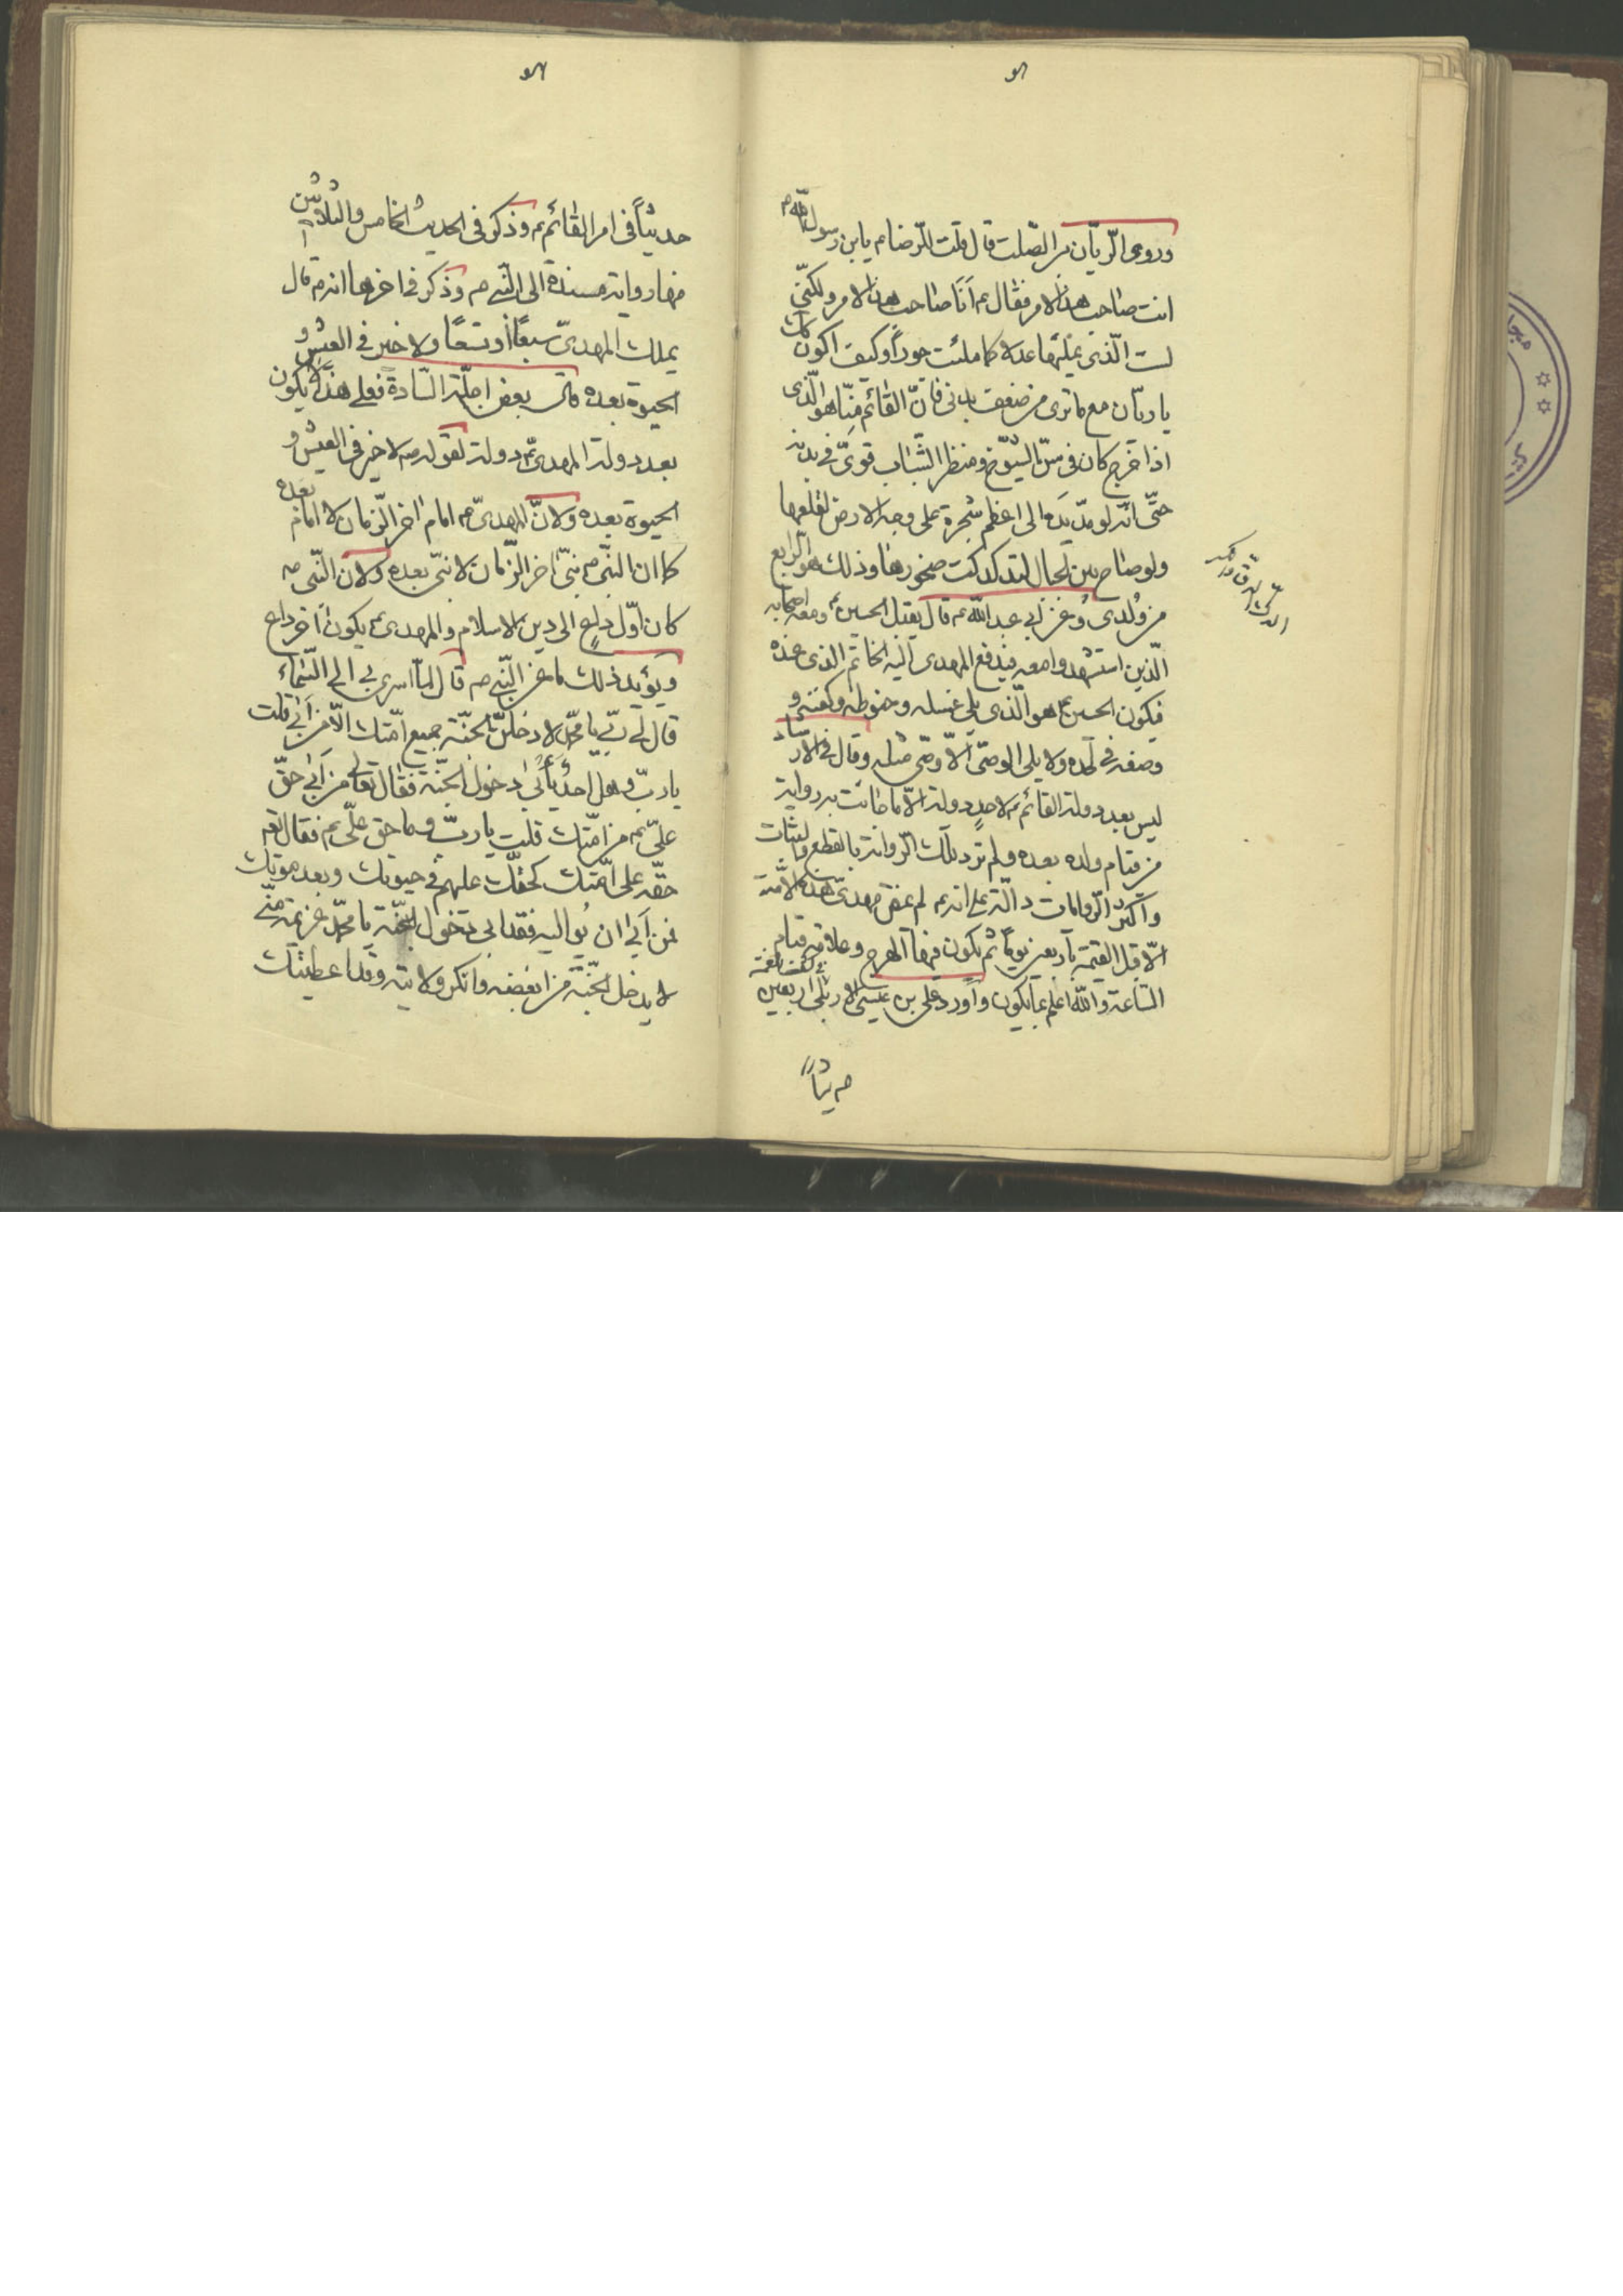 وروى الريّان بن الصّلت قال قلت للرّضا ع يابن رسول الله ص
انت صاحب هذا الامر فقال ع أنا صاحب هذا الامر ولكنّي
لست الّذي يملئها عدلا كما ملئت جوراً وكيف اكون ذلك
يا ريّان مع ما ترى من ضعف بدني فانّ القائم منّا هو الّذي
اذا خرج كان في سنّ الشيوخ ومنظر الشّباب قويّ في بدنه
حتّى انّه لو مدّ يده الى اعظم شجرة على وجه الارض لقلعها
ولو صاح بين الجبال لتدكدكت صخورها وذلك هو الرّابع
من وُلدى وعن ابي عبد الله ع قال يقبل الحسين ع ومعه اصحابه
الّذين استشهدوا معه فيدفع المهدى اليه الخاتم الذى عنده
فيكون الحسين ع هو الّذى يلي غسله وحنوطه وكفنه و
وضعه في لحده ولا يلى الوصّي الاّ وصّي مثله وقال في الارشاد
ليس بعد دولة القائم ع لاحدٍ دولة الاّ ما جائت به رواية
من قيام ولده بعده ولم ترد تلك الرّواية بالقطع والثبات
وأكثر الرّوايات دالّة على انه ع لم يمض مهدىّ هذه الامّة
الاّ قبل القيمة بأربعين يوماً ثم يكون فيها الهرج وعلامة قيام
السّاعة والله اعلم بما يكون وأورد على بن عيسى الاربلى في كشف الغمة اربعين
حديثاً
الدك الدق والكسر
حديثاً في امر القائم ع وذكر في الحديث الخامس والثلاثين
منها رواية مسندة الى النّبي ص وذكر في اخرها انه ص قال
يملك المهدىّ سبعًا أو تسعًا ولا خير في العيش و
الحيوة بعده قال بعض اجلّة السّادة فعلى هذا لا يكون
بعد دولة المهدىّ ع دولة لقوله ص لا خير في العيش و
الحيوة بعده ولانّ المهدىّ ع امام اخر الزّمان لا امام بعده
كما ان النبّي ص نبّي اخر الزّمان لا نبّي بعده ولان النّبي ص
كان اوّل داعٍ الى دين الاسلام والمهدى ع يكون آخر داع
ويؤيد ذلك ما عن النّبي ص قال لمّا أسرى بي الى السّماء
قال لى ربّي يا محمّد لادخلنّ الجنّة جميع امّتك الاّ من أبى قلت
يا ربّ وهل احدٌ يأبى دخول الجنّة فقال تعالى من أبى حقّ
علّي ع من امّتك قلت يا ربّ وما حق علّي ع فقال نعم
حقّه على امّتك كحقّك عليهم في حيوتك وبعد موتك
فمن أبى ان يواليه فقد ابى دخول الجنّة يا محمّد عزيمة منّي
لا يدخل الجنّة من ابغضه وانكر ولايته وقد اعطيتك